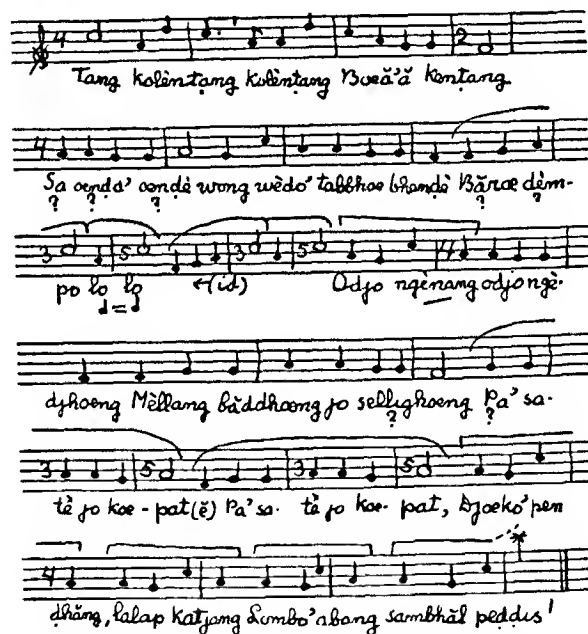 4 2
Tang kolèntang kolèntang Boeă'ă kentang
4
Sa oenda' oendè wong wèdo' tabbhoe bhendè Băroe dèm-
? ? ? ?
3 5 3 5 4
po lo lo (id) Odjo ngènang odjo ngè-
djhoeng Mèllang băddhoeng jo sellighoeng Pa' sa-
? ?
3 5 3 5
tè jo koe - pat(ĕ) Pa' sa- tè jo koe- pat, Djoeko' pen
4
dhăng, lalap katjang Lombo' abang sambhăl peddis!